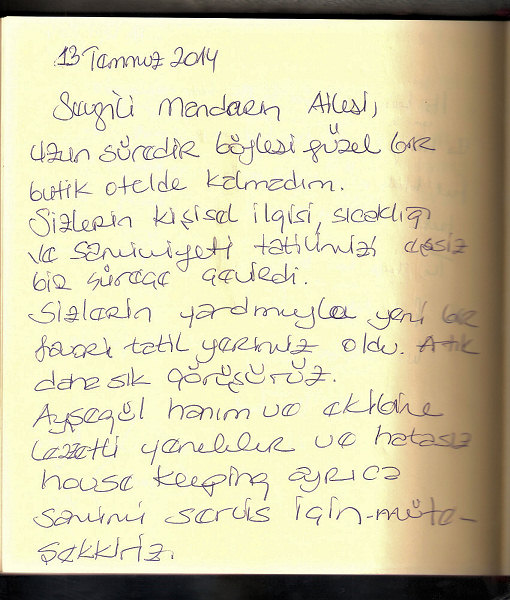 13 Temmuz 2014
Sevgili Mandarin Ailesi,
Uzun süredir böylesi güzel bir
butik otelde kalmadım.
Sizlerin kişisel ilgisi, sıcaklığı
ve samimiyeti tatilimizi eşsiz
bir sürece çevirdi.
Sizlerin yardımıyla yeni bir
favori tatil yerimiz oldu. Artık
daha sık görüşürüz.
Ayşegül hanım ve ekibine
lezzetli yemekler ve hatasız
house keeping ayrıca
samimi servis için müte-
şekkiriz.